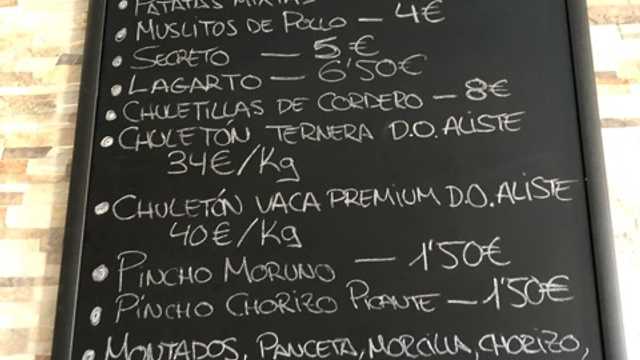 • PATATAS MIXTAS
• MUSLITOS DE POLLO – 4€
• SECRETO – 5€
• LAGARTO – 6'50€
• CHULETILLAS DE CORDERO – 8€
• CHULETÓN TERNERA D.O. ALISTE
34€/Kg
• CHULETÓN VACA PREMIUM D.O. ALISTE
40€/Kg
• PINCHO MORUNO – 1'50€
• PINCHO CHORIZO PICANTE – 1'50€
• MONTADOS, PANCETA, MORCILLA, CHORIZO,